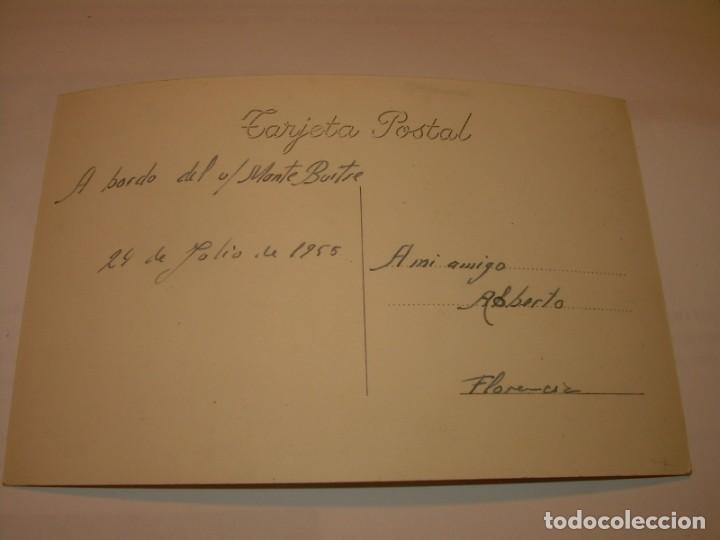 Tarjeta Postal
A bordo del v/ Monte Buitre
24 de Julio de 1955
A mi amigo
Alberto
Florencia
todocoleccion.net